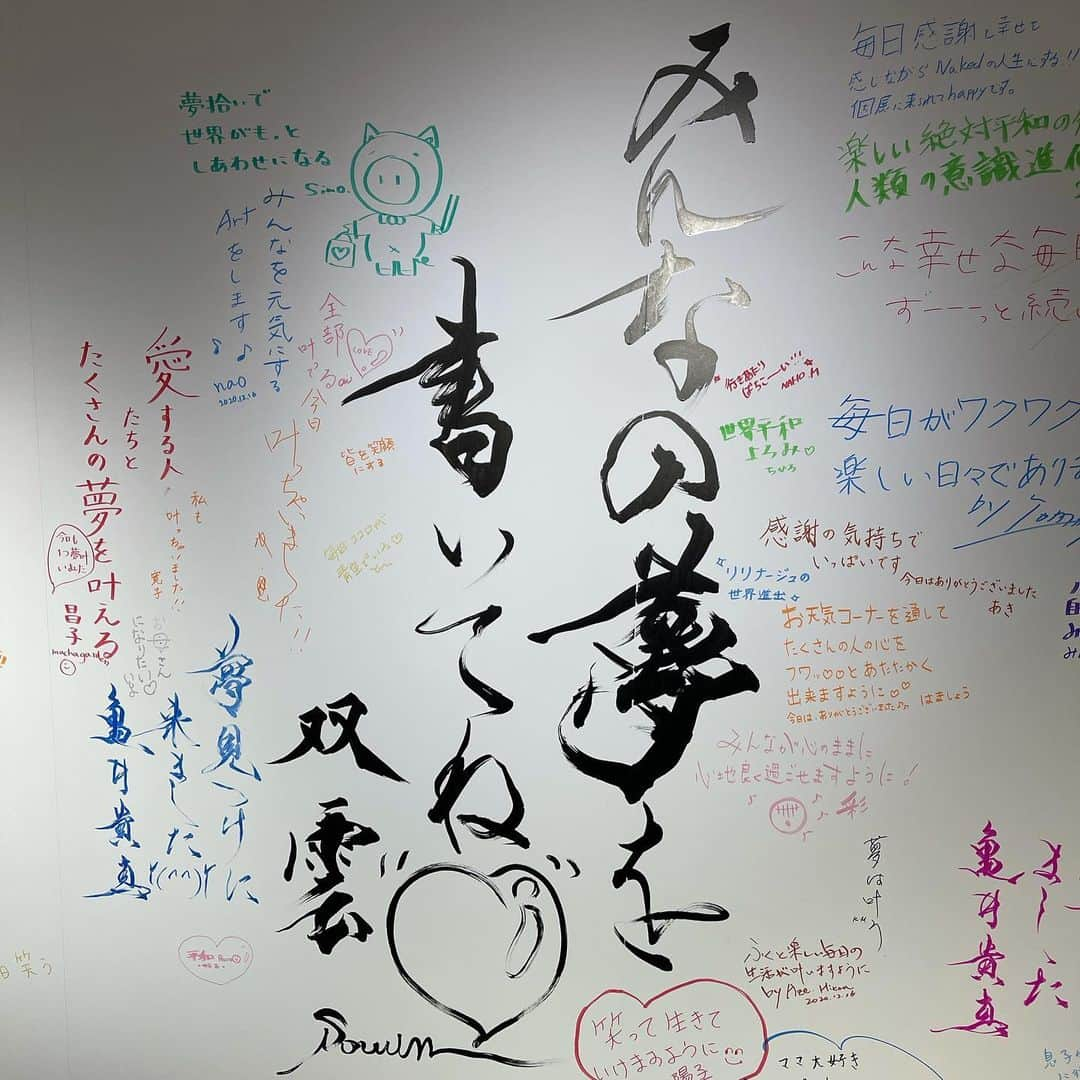 みんなの夢を
書いてね
双雲
夢拾いで
世界がもっと
しあわせになる
Simo.
みんなを元気にする
Artをします♪♪
nao
2020.12.16
全部
叶でる
今日
叶っちゃいました!!
LOVE
愛する人
たちと
たくさんの夢を叶える
昌子
machagard
私も
叶っちゃいました!!
皆を笑顔
にする
お母さん
になりたい♡
夢見つけに
来ました
t(^^)t
亀井貴真
平和
毎日感謝し幸せて
感じながらNakedの人生にする!!
個展に来られてhappyです。
楽しい絶対平和の
人類の意識進化
こんな幸せな毎日
ずーーっと続
行きあたり
ばちこーい…
NAHO.M
世界平和
よろみ♡
ちひろ
毎日がワクワク
楽しい日々であり
by
感謝の気持ちで
いっぱいです
今日はありがとうございました
あき
☆リリナージュの
世界進出☆
お天気コーナーを通して
たくさんの人の心を
フワッ♡♡とあたたかく
出来ますように♡♡
今日は、ありがとうございました♪
はましょう
みんなが心のままに
心地良く過ごせますように!
彩
夢は叶う
ふくと楽しい毎日の
生活が叶いますように
2020.12.16
ました
亀井貴真
笑って生きて
いけますように
陽子
ママ大好き
息子
日笑う